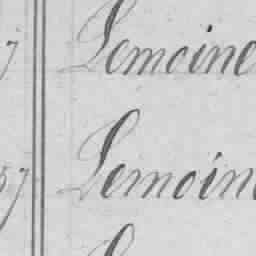 7 Lemoine
57 Lemoin